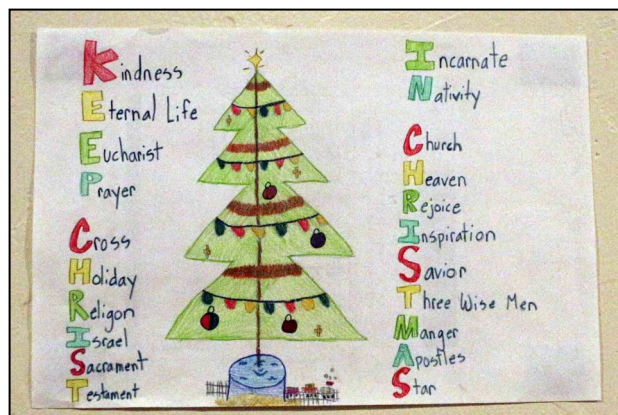 Kindness
Eternal Life
Eucharist
Prayer
Cross
Holiday
Religon
Israel
Sacrament
Testament
Incarnate
Nativity
Church
Heaven
Rejoice
Inspiration
Savior
Three Wise Men
Manger
Apostles
Star